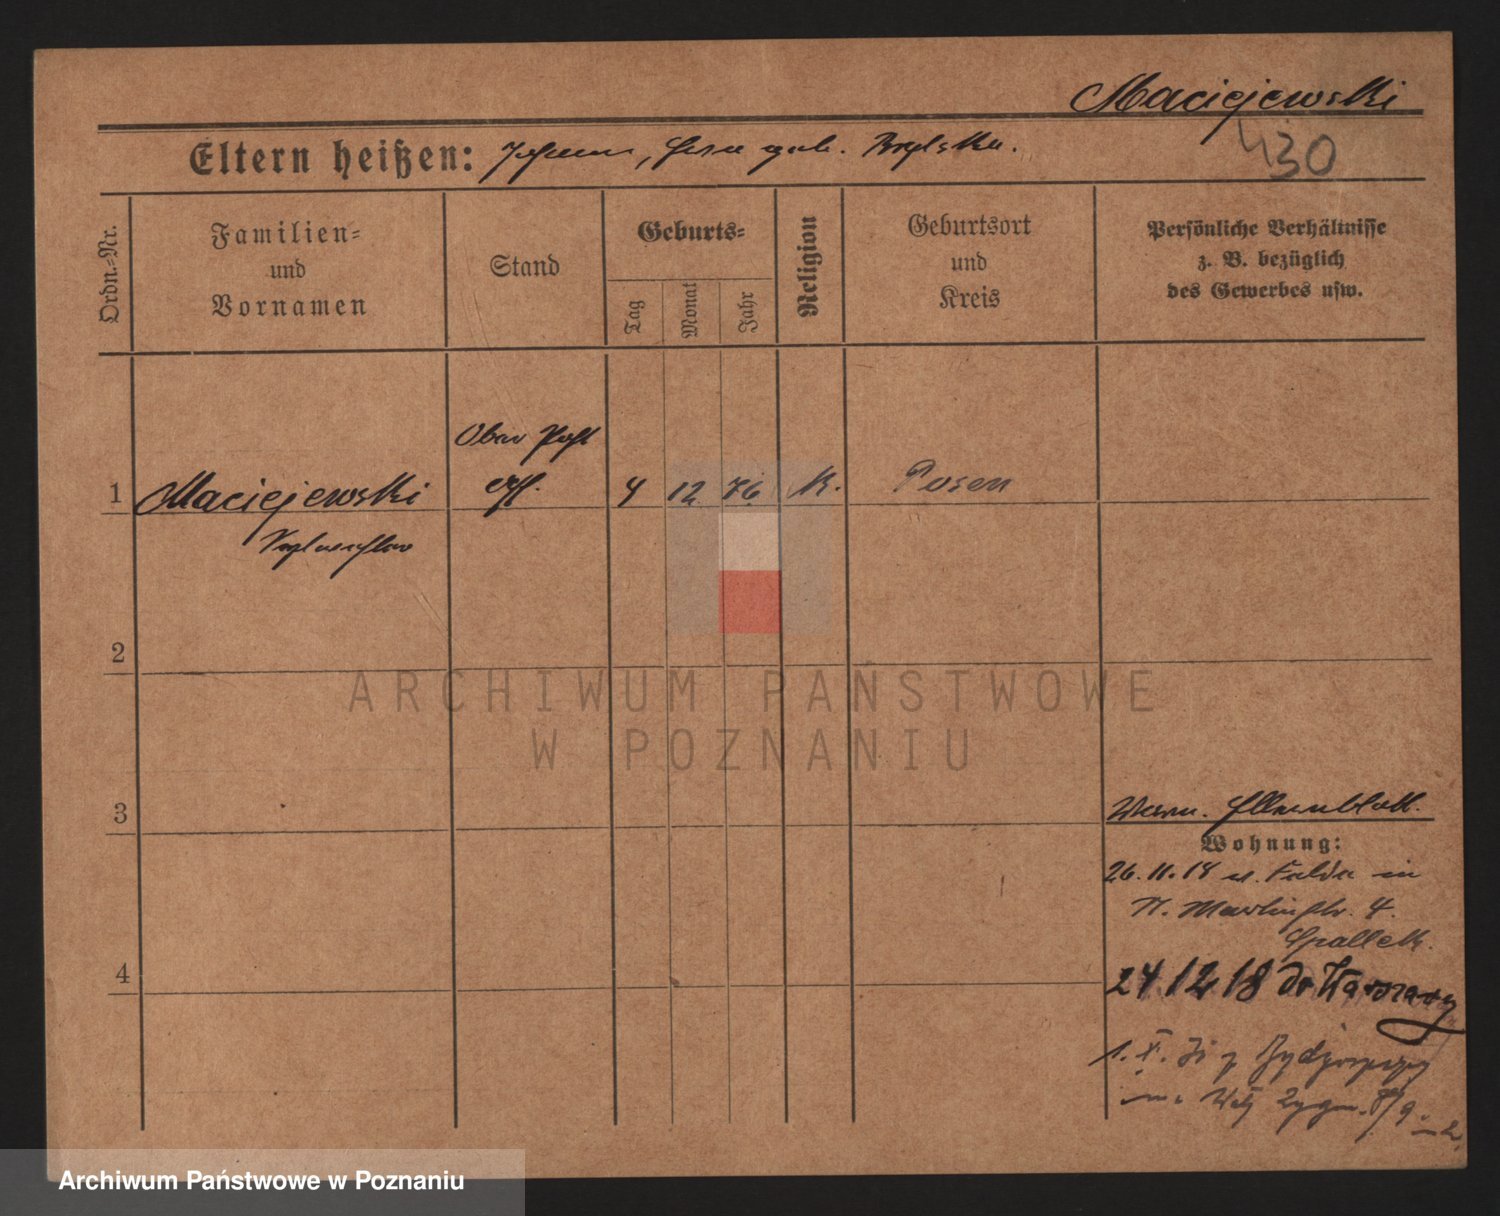 Maciejewski
430
Eltern heißen: Johann, geb.
Ordn.-Nr.
Familien-
und
Vornamen
Stand
Geburts-
Tag
Monat
Jahr
Religion
Geburtsort
und
Kreis
Persönliche Verhältnisse
z. B. bezüglich
des Gewerbes usw.
Ober Post
1 Maciejewski 4 12 76 K. Posen
2
ARCHIWUM PAŃSTWOWE
W POZNANIU
3
Wohnung:
26.11.18 v. Fulda in
St. Martinstr. 4.
4
24 12 18 do Warszawy
Archiwum Państwowe w Poznaniu